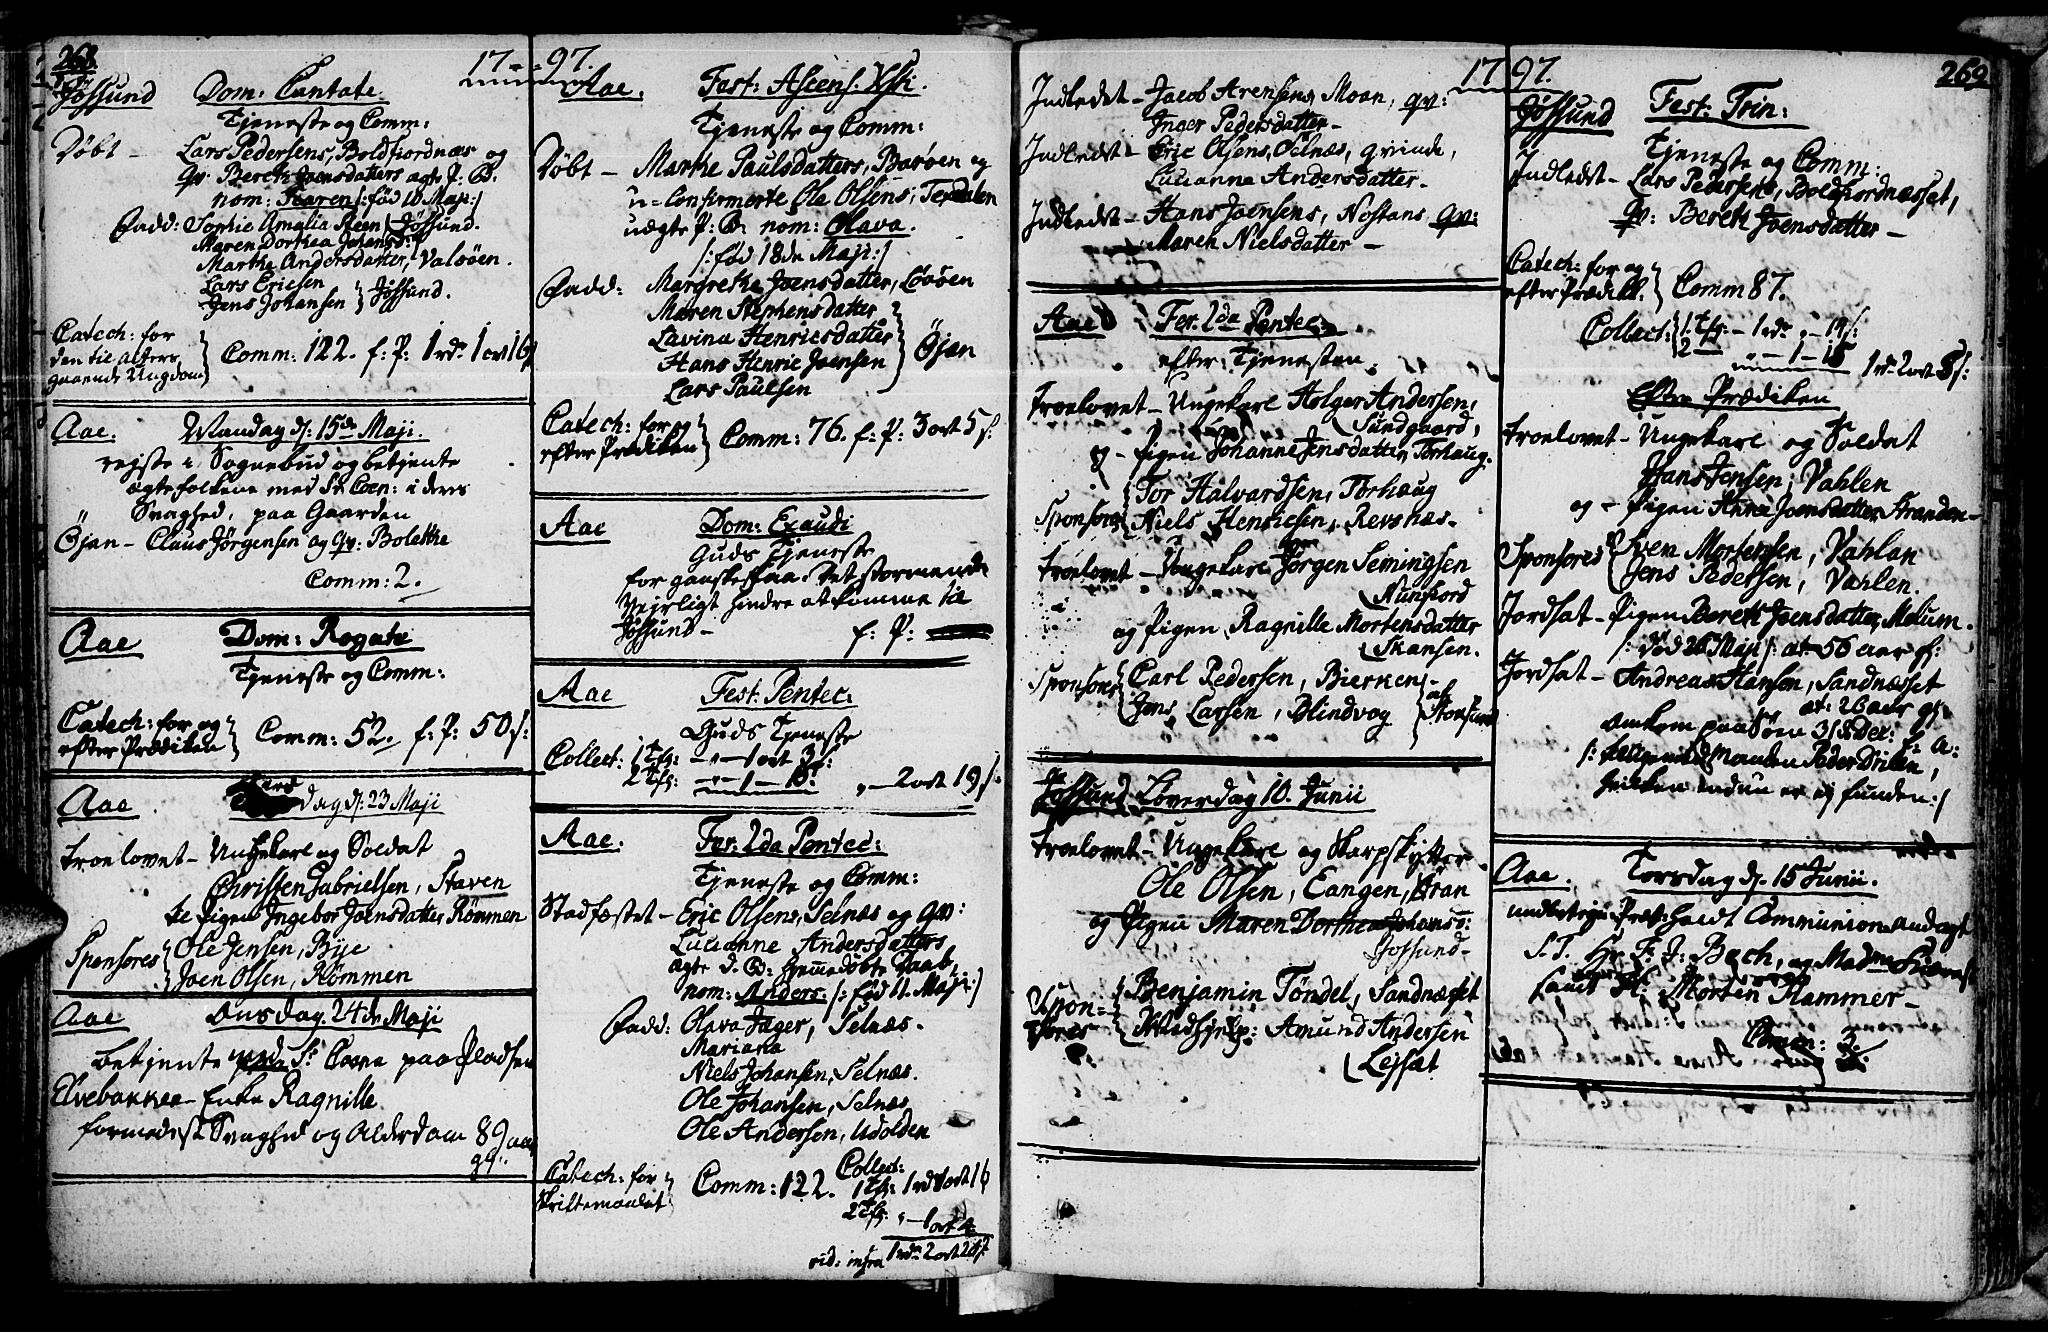 268.
17 - 97.
Jøssund Dom: Cantate.
Tjeneste og Comm:
Døbt - Lars Pedersens, Boldfiordnæs og
Qv: Bereth Joensdatters ægte P: B.
nom: Karen /: fød 10 Maji :/
Fadd: Sophie Amalia Steen } Jøssund.
Maren Dorthea Johansd:
Marthe Andersdatter, Valøen.
Lars Ericsen
Jens Johansen } Jøssund.
Catech: for
den til alters
gaaende Ungdom } Comm: 122. f: P: 1 rdr 1 ort 16
Aae. Mandag d: 15de Maji.
rejste i Sognebud og betjente
ægtefolkene med St. Coen: i deres
Svaghed, paa Gaarden
Øjan - Claus Jørgensen og Qv: Bolethe
Comm: 2.
Aae Dom: Rogate
Tjeneste og Comm:
Catech: for og
efter Prædiken } Comm: 52. f: P: 50 s:
Aae dag d: 23 Maji
Troelovet - Ungekarl og Soldat
Christen Gabrielsen, Staven
og Pigen Ingebor Joensdatter, Rømmen
Sponsores { Ole Jensen, Bye
Joen Olsen, Rømmen
Aae Onsdag 24de Maji
betjente med St. Coena paa Pladsen
Elvebakken - Enke Ragnille
formedelst Svaghed og Alderdom 89 aar
gl:
Aae. Fest: Ascens: Xsti.
Tjeneste og Comm:
Døbt - Marthe Paulsdatters, Barøen og
u-confirmerte Ole Olsens, Terdalen
uægte P: B. nom: Olava.
/: fød 18de Maji :/
Fadd: Margrethe Joensdatter, Løøen
Maren Stephensdatter
Lavina Henricsdatter
Hans Henric Joensen
Lars Paulsen } Øjan
Catech: for og
efter Prædiken } Comm: 76. f: P: 3 ort 5 s:
Aae Dom: Exaudi
Guds Tjeneste
for ganske faa. Det stormende
Vejrligt hindre at komme til
Jøssund - f: P:
Aae Fest: Pentec:
Guds Tjeneste
Collect: 1 Tfl: - " - 1 ort 3 s:
2 Tfl: " - 1 - 16 " - 2 ort 19 s:
Aae. Fer: 2da Pentec:
Tjeneste og Comm:
Stadfæstet - Eric Olsens, Selnæs og Qv:
Lucianne Andersdatters
ægte d. B: hjemmedøbte Daab,
nom: Anders. /: fød 11. Maji :/
Fadd: Olava Jæger, Selnæs.
Mariana
Niels Johansen, Selnæs.
Ole Johansen, Selnæs
Ole Andersen, Udolden
Catech: for
Skriftemaalet } Comm: 122. Collect:
1 Tfl: 1 rd 1 ort 16
2 Tfl: " - 1 ort 4
vid: infra 1 rdr 2 ort 20
17 97.
269
Indledet - Jacob Arensens, Moan, Qv:
Inger Pedersdatter -
Indledet - Eric Olsens, Selnæs, Qvinde,
Lucianne Andersdatter.
Indledet - Hans Joensens, Nostans Qv:
Maren Nielsdatter -
Aae Fer. 2da Pentec:
efter Tjenesten
Troelovet - Ungekarl Holger Andersen,
Sundgaard,
og - Pigen Johanne Jensdatter, Torhaug.
Sponsores { Tor Halvardsen, Torhaug
Niels Henricsen, Revsnæs.
Troelovet - Ungekarl Jørgen Semingsen
Nunfiord
og Pigen Ragnille Mortensdatter
Skansen.
Sponsores { Carl Pedersen, Bierken
Jens Larsen, Blindvog } af Stoksund
Jøssund Løverdag 10. Junii
Troelovet - Ungekarl og Skarpskytter
Ole Olsen, Eangen,
og Pigen Maren Dorthea Johansd:
Jøssund -
Sponsores { Benjamin Tøndel, Sandnæset
Medhielp: Amund Andersen
Lejsæt
Jøssund Fest: Trin:
Tjeneste og Comm:
Indledet - Lars Pedersens, Boldfiordnæsset,
Qv: Bereth Joensdatter -
Catech: for og
efter Prædik: } Comm 87.
Collect: { 1 Tfl: - 1 rdr " - 14 s:
2 - " - 1 - 18 1 rdr 2 ort 8 s:
Efter Prædiken
Troelovet - Ungekarl og Soldat
Hans Jensen, Vahlen
og - Pigen Anna Joensdatter, Stranden -
Sponsores { Sven Mortensen, Vahlen
Jens Pedersen, Vahlen.
Jordsat - Pigen Bereth Joensdatter, Melum.
/: død 26 Maji :/ at: 56 aar gl:
Jordsat - Andreas Hansen, Sandnæsset
at: 26 aar gl:
omkom paa Søen 31 Dec: f: a:
/: tilligemed Manden Peder
hvilken endnu er ej funden :/
Aae. Torsdag d: 15 Junii.
holdt Communion andagt
S. T. Hr. F. J. Bech, og Madme
samt Morten Hammer -
Comm: 3.